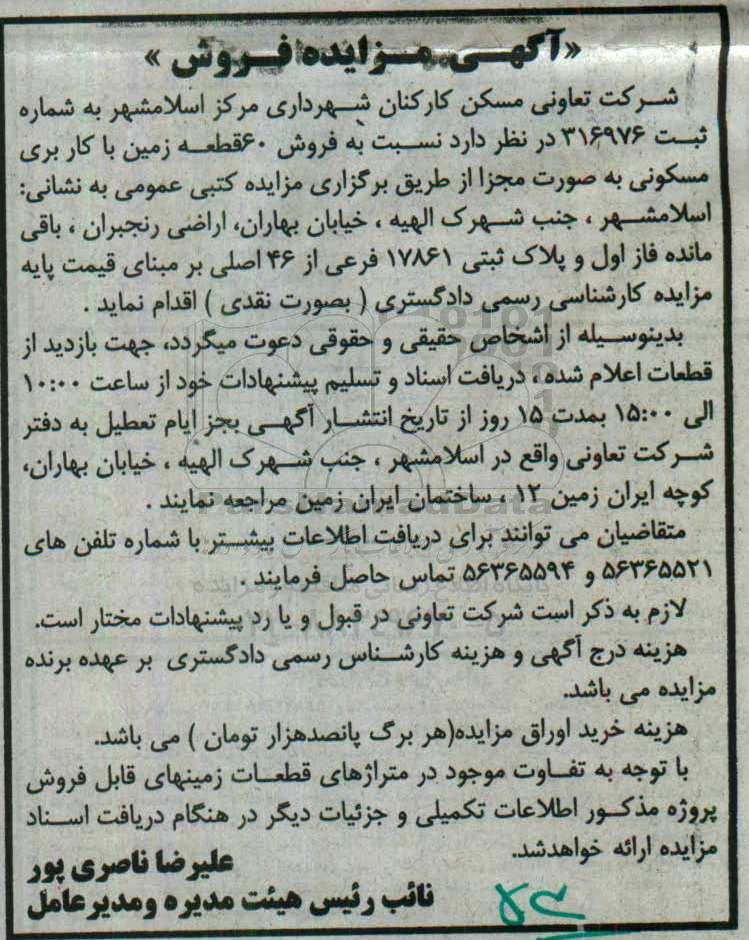 «آگهی مزایده فروش»
شرکت تعاونی مسکن کارکنان شهرداری مرکز اسلامشهر به شماره
ثبت ۳۱۶۹۷۶ در نظر دارد نسبت به فروش ۶۰قطعه زمین با کار بری
مسکونی به صورت مجزا از طریق برگزاری مزایده کتبی عمومی به نشانی:
اسلامشهر ، جنب شهرک الهیه ، خیابان بهاران، اراضی رنجبران ، باقی
مانده فاز اول و پلاک ثبتی ۱۷۸۶۱ فرعی از ۴۶ اصلی بر مبنای قیمت پایه
مزایده کارشناسی رسمی دادگستری ( بصورت نقدی ) اقدام نماید .
بدینوسیله از اشخاص حقیقی و حقوقی دعوت میگردد، جهت بازدید از
قطعات اعلام شده ، دریافت اسناد و تسلیم پیشنهادات خود از ساعت ۱۰:۰۰
الی ۱۵:۰۰ بمدت ۱۵ روز از تاریخ انتشار آگهی بجز ایام تعطیل به دفتر
شرکت تعاونی واقع در اسلامشهر ، جنب شهرک الهیه ، خیابان بهاران،
کوچه ایران زمین ۱۲ ، ساختمان ایران زمین مراجعه نمایند .
متقاضیان می توانند برای دریافت اطلاعات بیشتر با شماره تلفن های
۵۶۳۶۵۵۲۱ و ۵۶۳۶۵۵۹۴ تماس حاصل فرمایند .
لازم به ذکر است شرکت تعاونی در قبول و یا رد پیشنهادات مختار است.
هزینه درج آگهی و هزینه کارشناس رسمی دادگستری بر عهده برنده
مزایده می باشد.
هزینه خرید اوراق مزایده(هر برگ پانصدهزار تومان ) می باشد.
با توجه به تفاوت موجود در متراژهای قطعات زمینهای قابل فروش
پروژه مذکور اطلاعات تکمیلی و جزئیات دیگر در هنگام دریافت اسناد
مزایده ارائه خواهدشد.
علیرضا ناصری پور
نائب رئیس هیئت مدیره ومدیرعامل